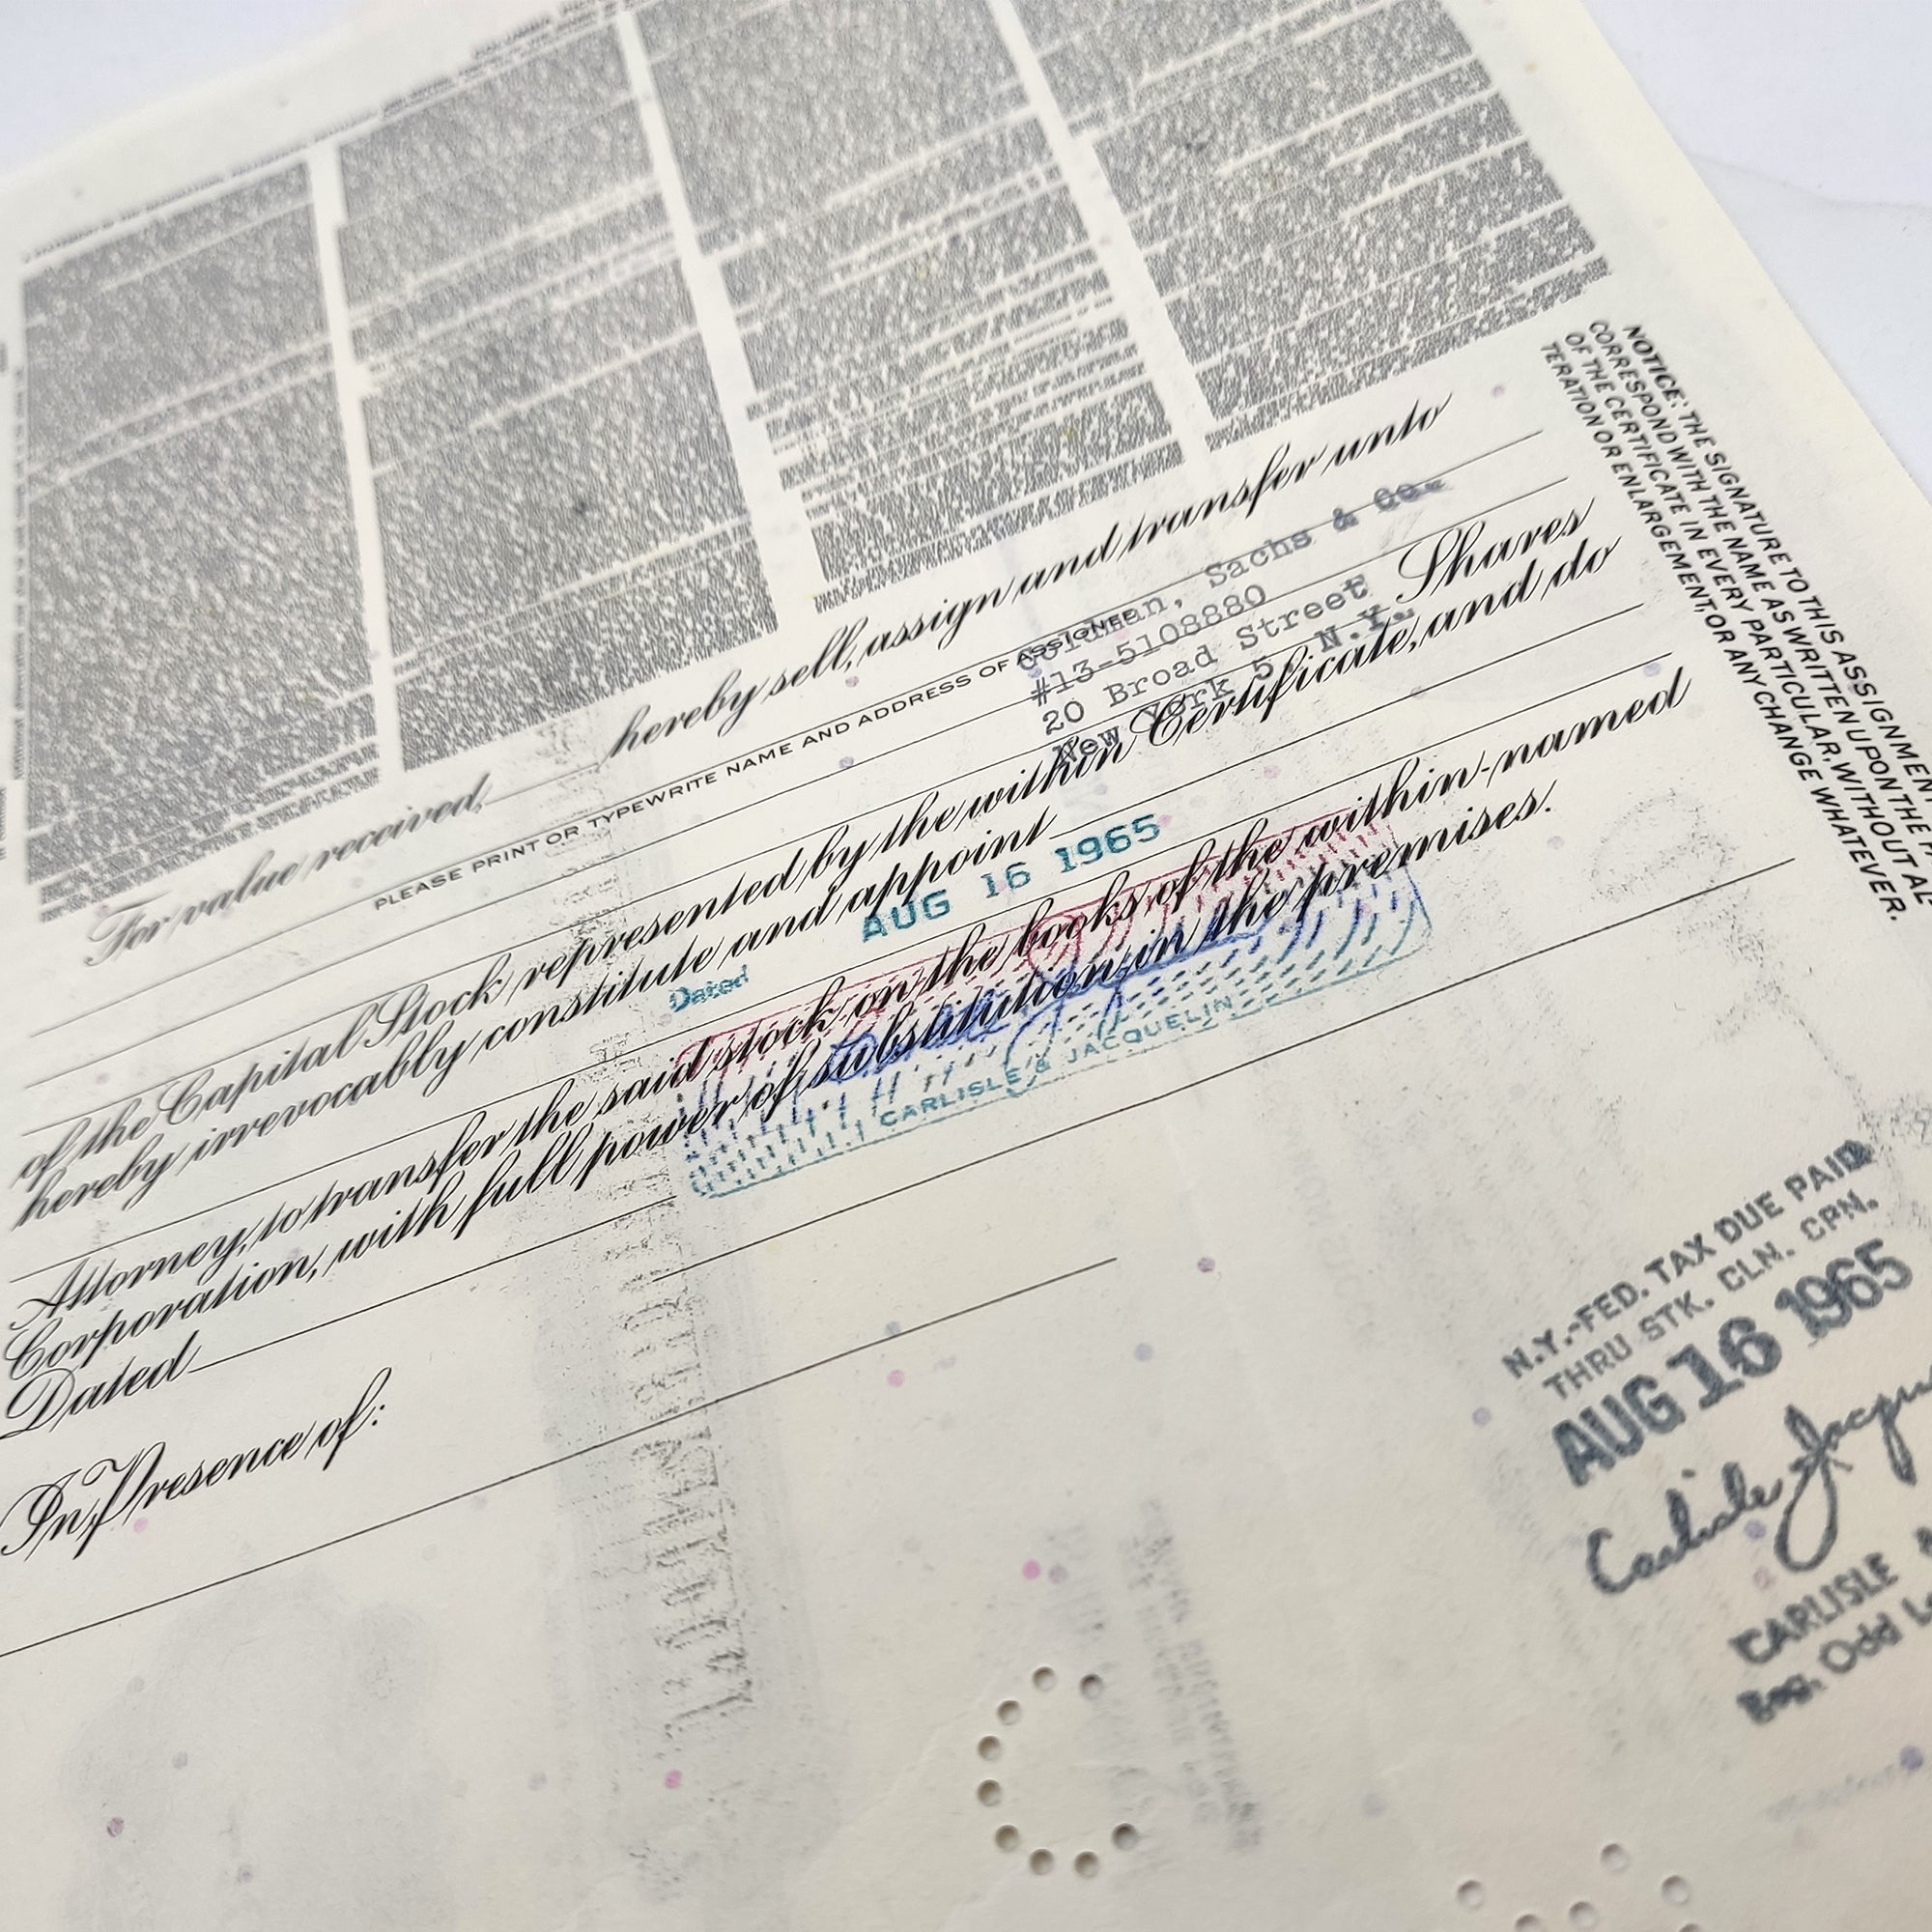 For value received, hereby sell, assign and transfer unto
PLEASE PRINT OR TYPEWRITE NAME AND ADDRESS OF ASSIGNEE
Goldman, Sachs & Co.
#13-5108880
20 Broad Street
New York 5, N.Y.
Shares
of the Capital Stock represented by the within Certificate, and do
hereby irrevocably constitute and appoint
AUG 16 1965
Dated
Attorney, to transfer the said stock on the books of the within-named
Corporation, with full power of substitution in the premises.
CARLISLE & JACQUELIN
Dated
In Presence of:
NOTICE: THE SIGNATURE TO THIS ASSIGNMENT
CORRESPOND WITH THE NAME AS WRITTEN UPON THE
OF THE CERTIFICATE IN EVERY PARTICULAR, WITHOUT AL-
TERATION OR ENLARGEMENT, OR ANY CHANGE WHATEVER.
N.Y.-FED. TAX DUE PAID
THRU STK. CLN. CPN.
AUG 16 1965
Carlisle Jacqu
CARLISLE
Odd